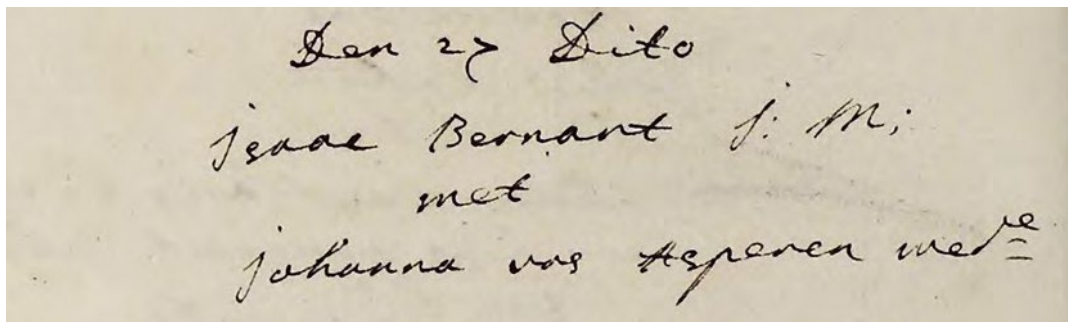 Den 27 Dito
jsaac Bernart j: M;
met
johanna vos Asperen wedᵉ